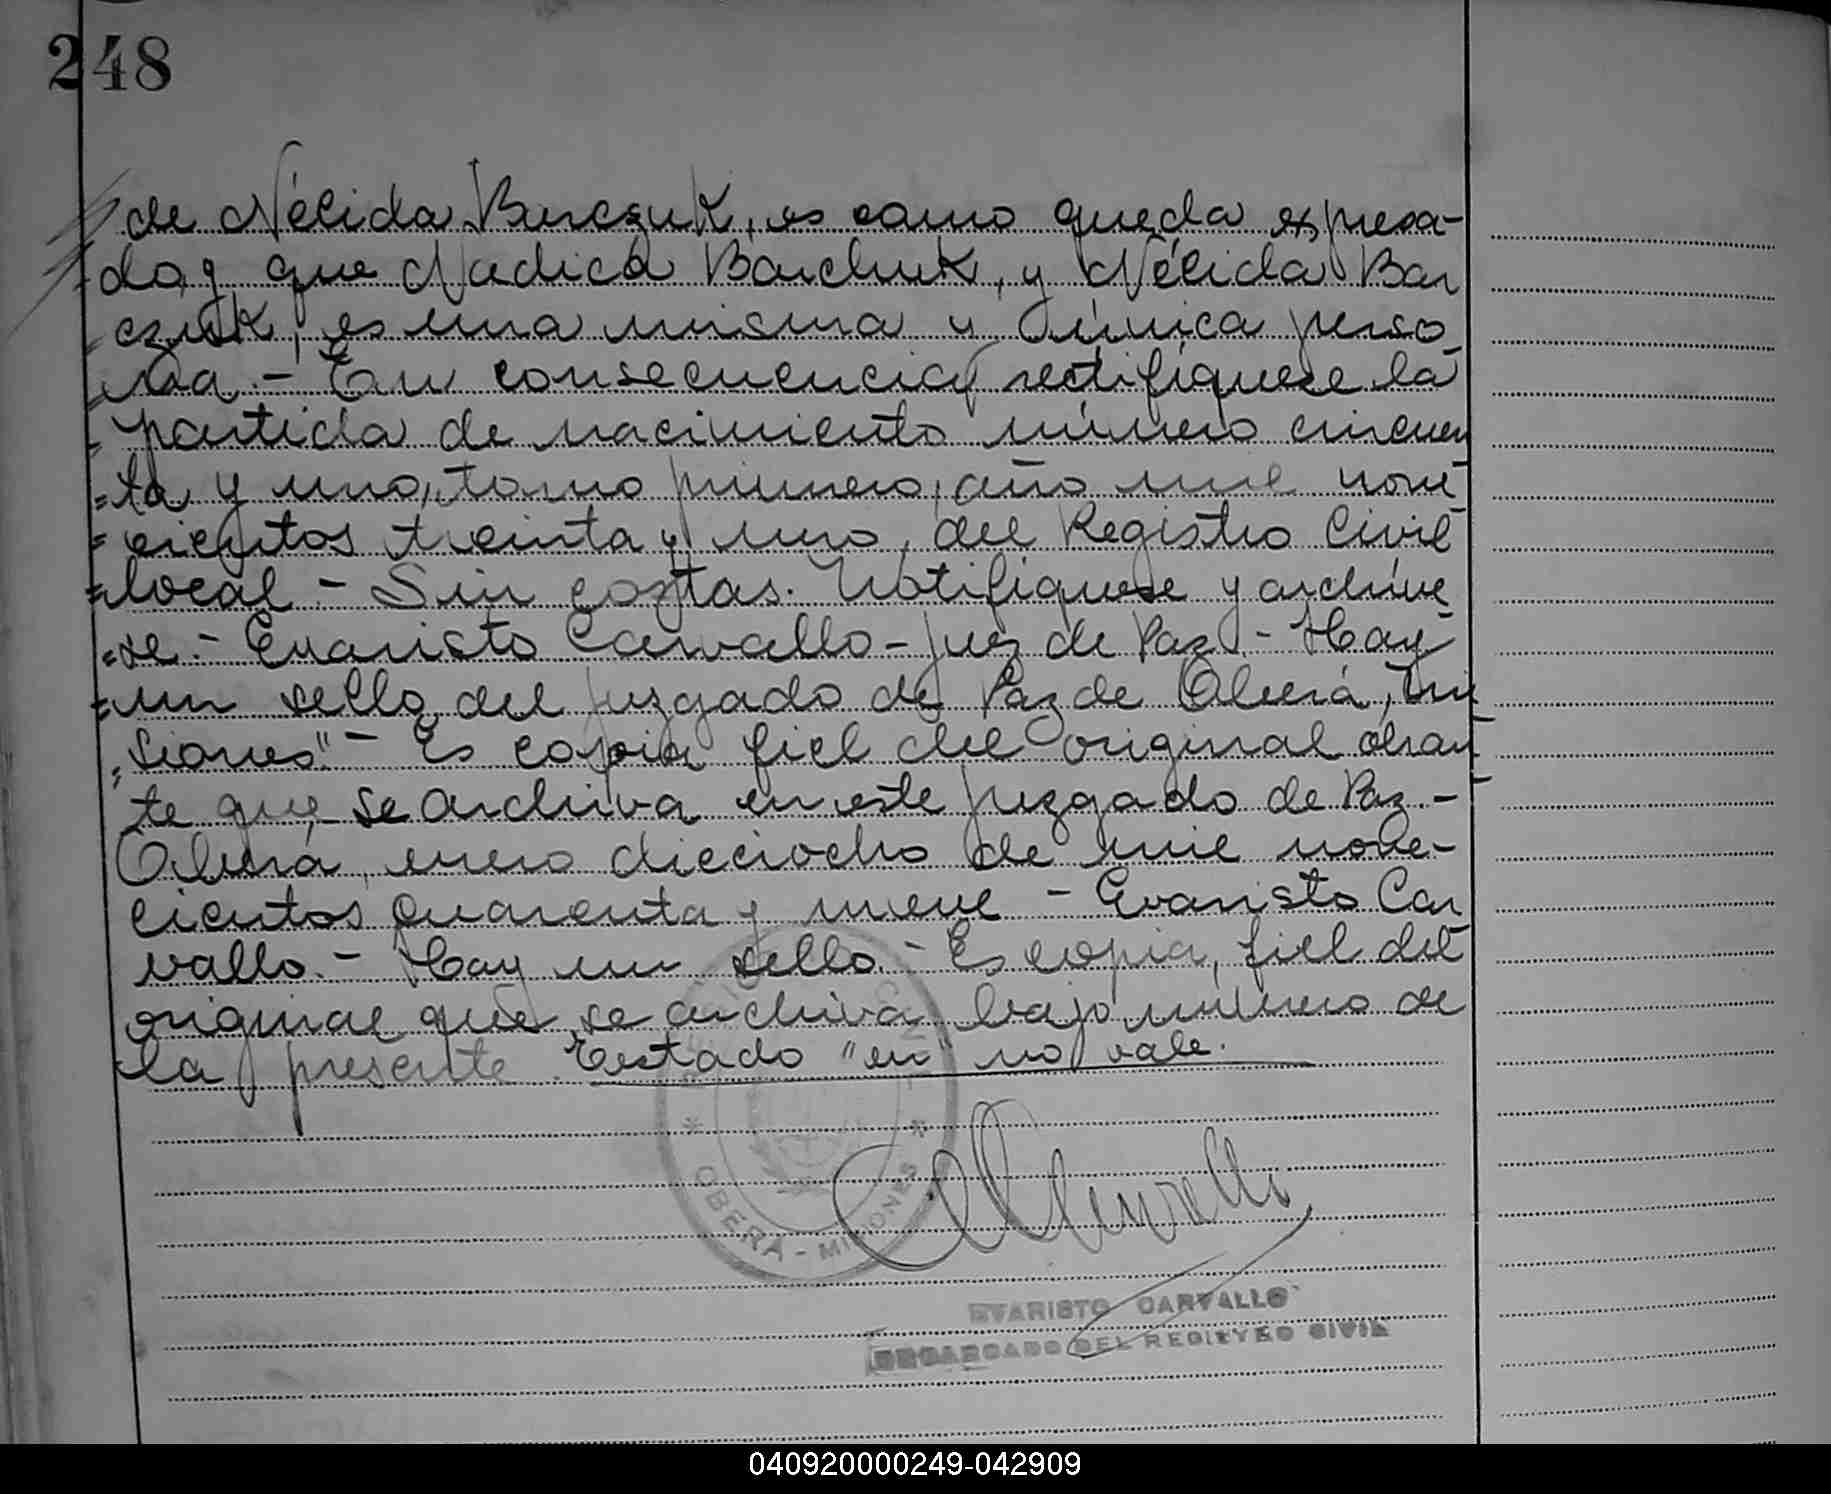 248
de Nélida Burczuk, es como queda expresa-
do, y que Nadica Barchuk, y Nélida Bar
czuk, es una misma y única perso
na.- En consecuencia, rectifíquese la
partida de nacimiento número cincuen
ta y uno, tomo primero, año mil nove
cientos treinta y uno, del Registro Civil
local - Sin costas. Notifíquese y archíve
se.- Evaristo Carvallo - Juez de Paz - Hay
un sello del juzgado de Paz de Oberá, Mi
siones".- Es copia fiel del original obran
te que se archiva en este juzgado de Paz.-
Oberá, enero dieciocho de mil nove-
cientos cuarenta y nueve - Evaristo Car
vallo.- Hay un sello.- Es copia fiel del
original que se archiva bajo número de
la presente. Testado "en" no vale.
OBERÁ - MISIONES
EVARISTO CARVALLO
ENCARGADO DEL REGISTRO CIVIL
040920000249-042909